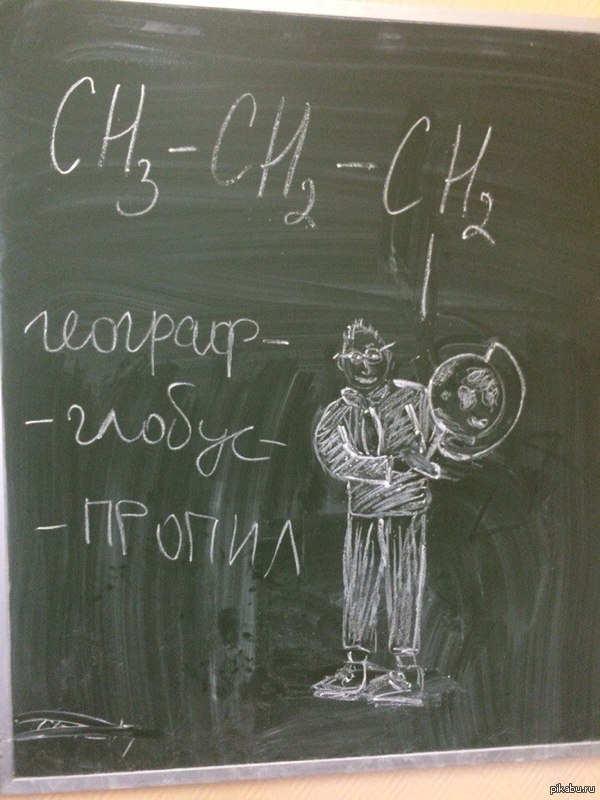 CH₃-CH₂-CH₂
географ-
-глобус-
-ПРОПИЛ
pikabu.ru